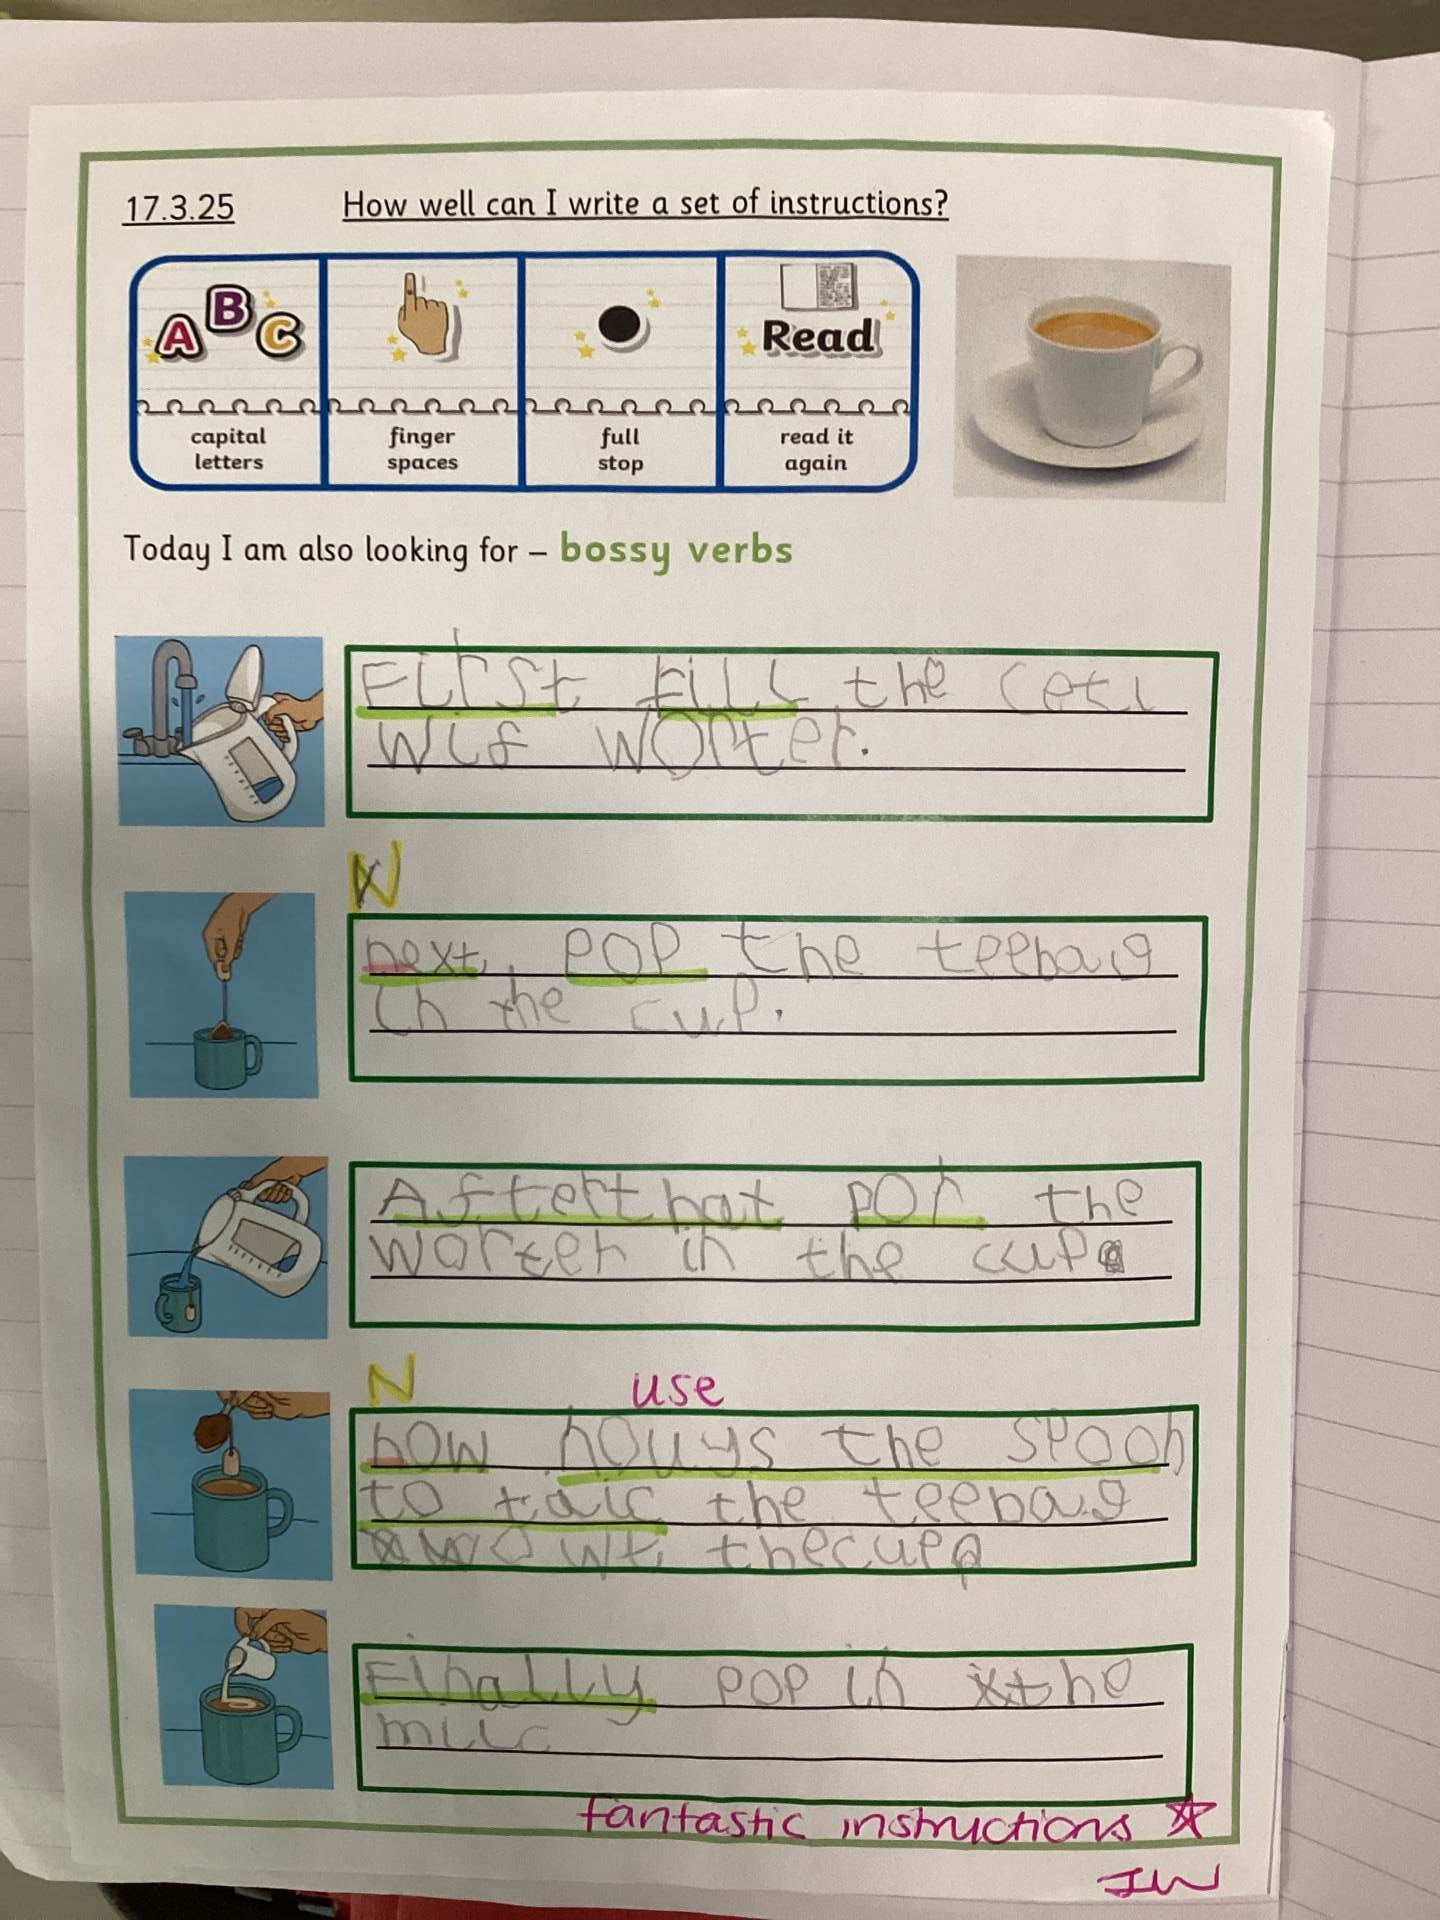 17.3.25 How well can I write a set of instructions?
A B C
Read
capital letters
finger spaces
full stop
read it again
Today I am also looking for – bossy verbs
First fill the cetl
wif worter.
N
next, pop the teebag
in the cup.
Afterthat por the
worter in the cup.
N use
now nouys the spoon
to taic the teebag
owt thecup
Finally pop in the
milc
fantastic instructions
JW